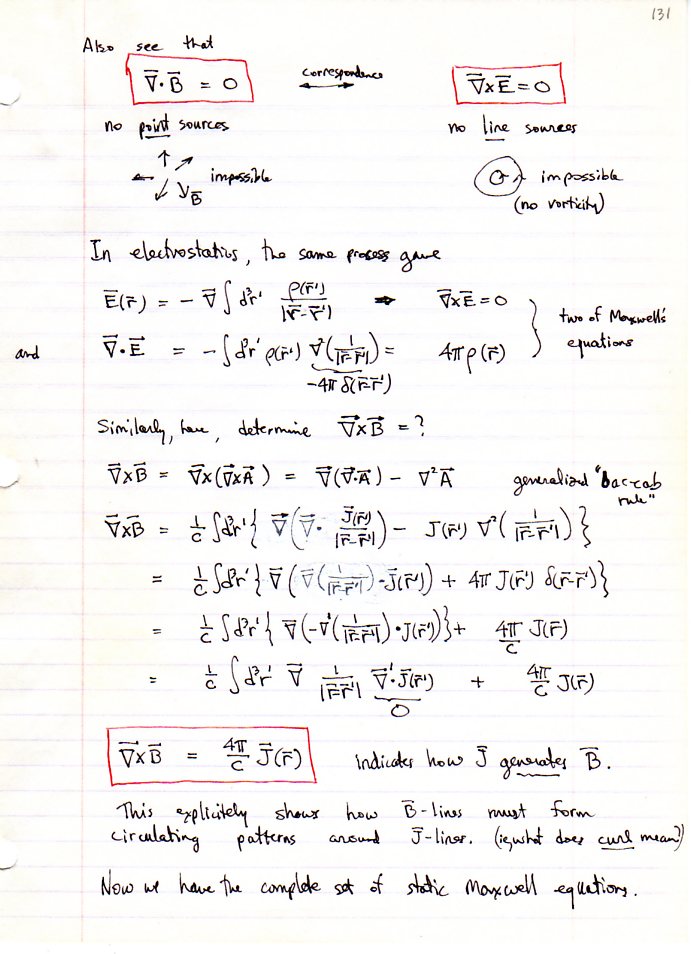 131
Also see that
∇⃗·B⃗ = 0 correspondence ⟷ ∇⃗×E⃗ = 0
no point sources no line sources
impossible B⃗ impossible
(no vorticity)
In electrostatics, the same process gave
E⃗(r⃗) = − ∇⃗ ∫ d³r' ρ(r⃗')/|r⃗−r⃗'| ⇒ ∇⃗×E⃗ = 0
and ∇⃗·E⃗ = −∫ d³r' ρ(r⃗') ∇²(1/|r⃗−r⃗'|) = 4πρ(r⃗)
−4π δ(r⃗−r⃗')
two of Maxwell's
equations
Similarly, here, determine ∇⃗×B⃗ = ?
∇⃗×B⃗ = ∇⃗×(∇⃗×A⃗) = ∇⃗(∇⃗·A⃗) − ∇²A⃗ generalized "bac-cab
rule"
∇⃗×B⃗ = 1/c ∫d³r' { ∇⃗(∇⃗· J⃗(r⃗')/|r⃗−r⃗'|) − J(r⃗') ∇²(1/|r⃗−r⃗'|) }
= 1/c ∫d³r' { ∇⃗(∇⃗(1/|r⃗−r⃗'|)·J⃗(r⃗')) + 4π J(r⃗') δ(r⃗−r⃗') }
= 1/c ∫d³r' { ∇⃗(−∇⃗'(1/|r⃗−r⃗'|)·J(r⃗')) } + 4π/c J(r⃗)
= 1/c ∫d³r' ∇⃗ 1/|r⃗−r⃗'| ∇⃗'·J⃗(r⃗') + 4π/c J(r⃗)
0
∇⃗×B⃗ = 4π/c J⃗(r⃗) indicates how J⃗ generates B⃗.
This explicitely shows how B⃗-lines must form
circulating patterns around J⃗-lines. (ie, what does curl mean?)
Now we have the complete set of static Maxwell equations.